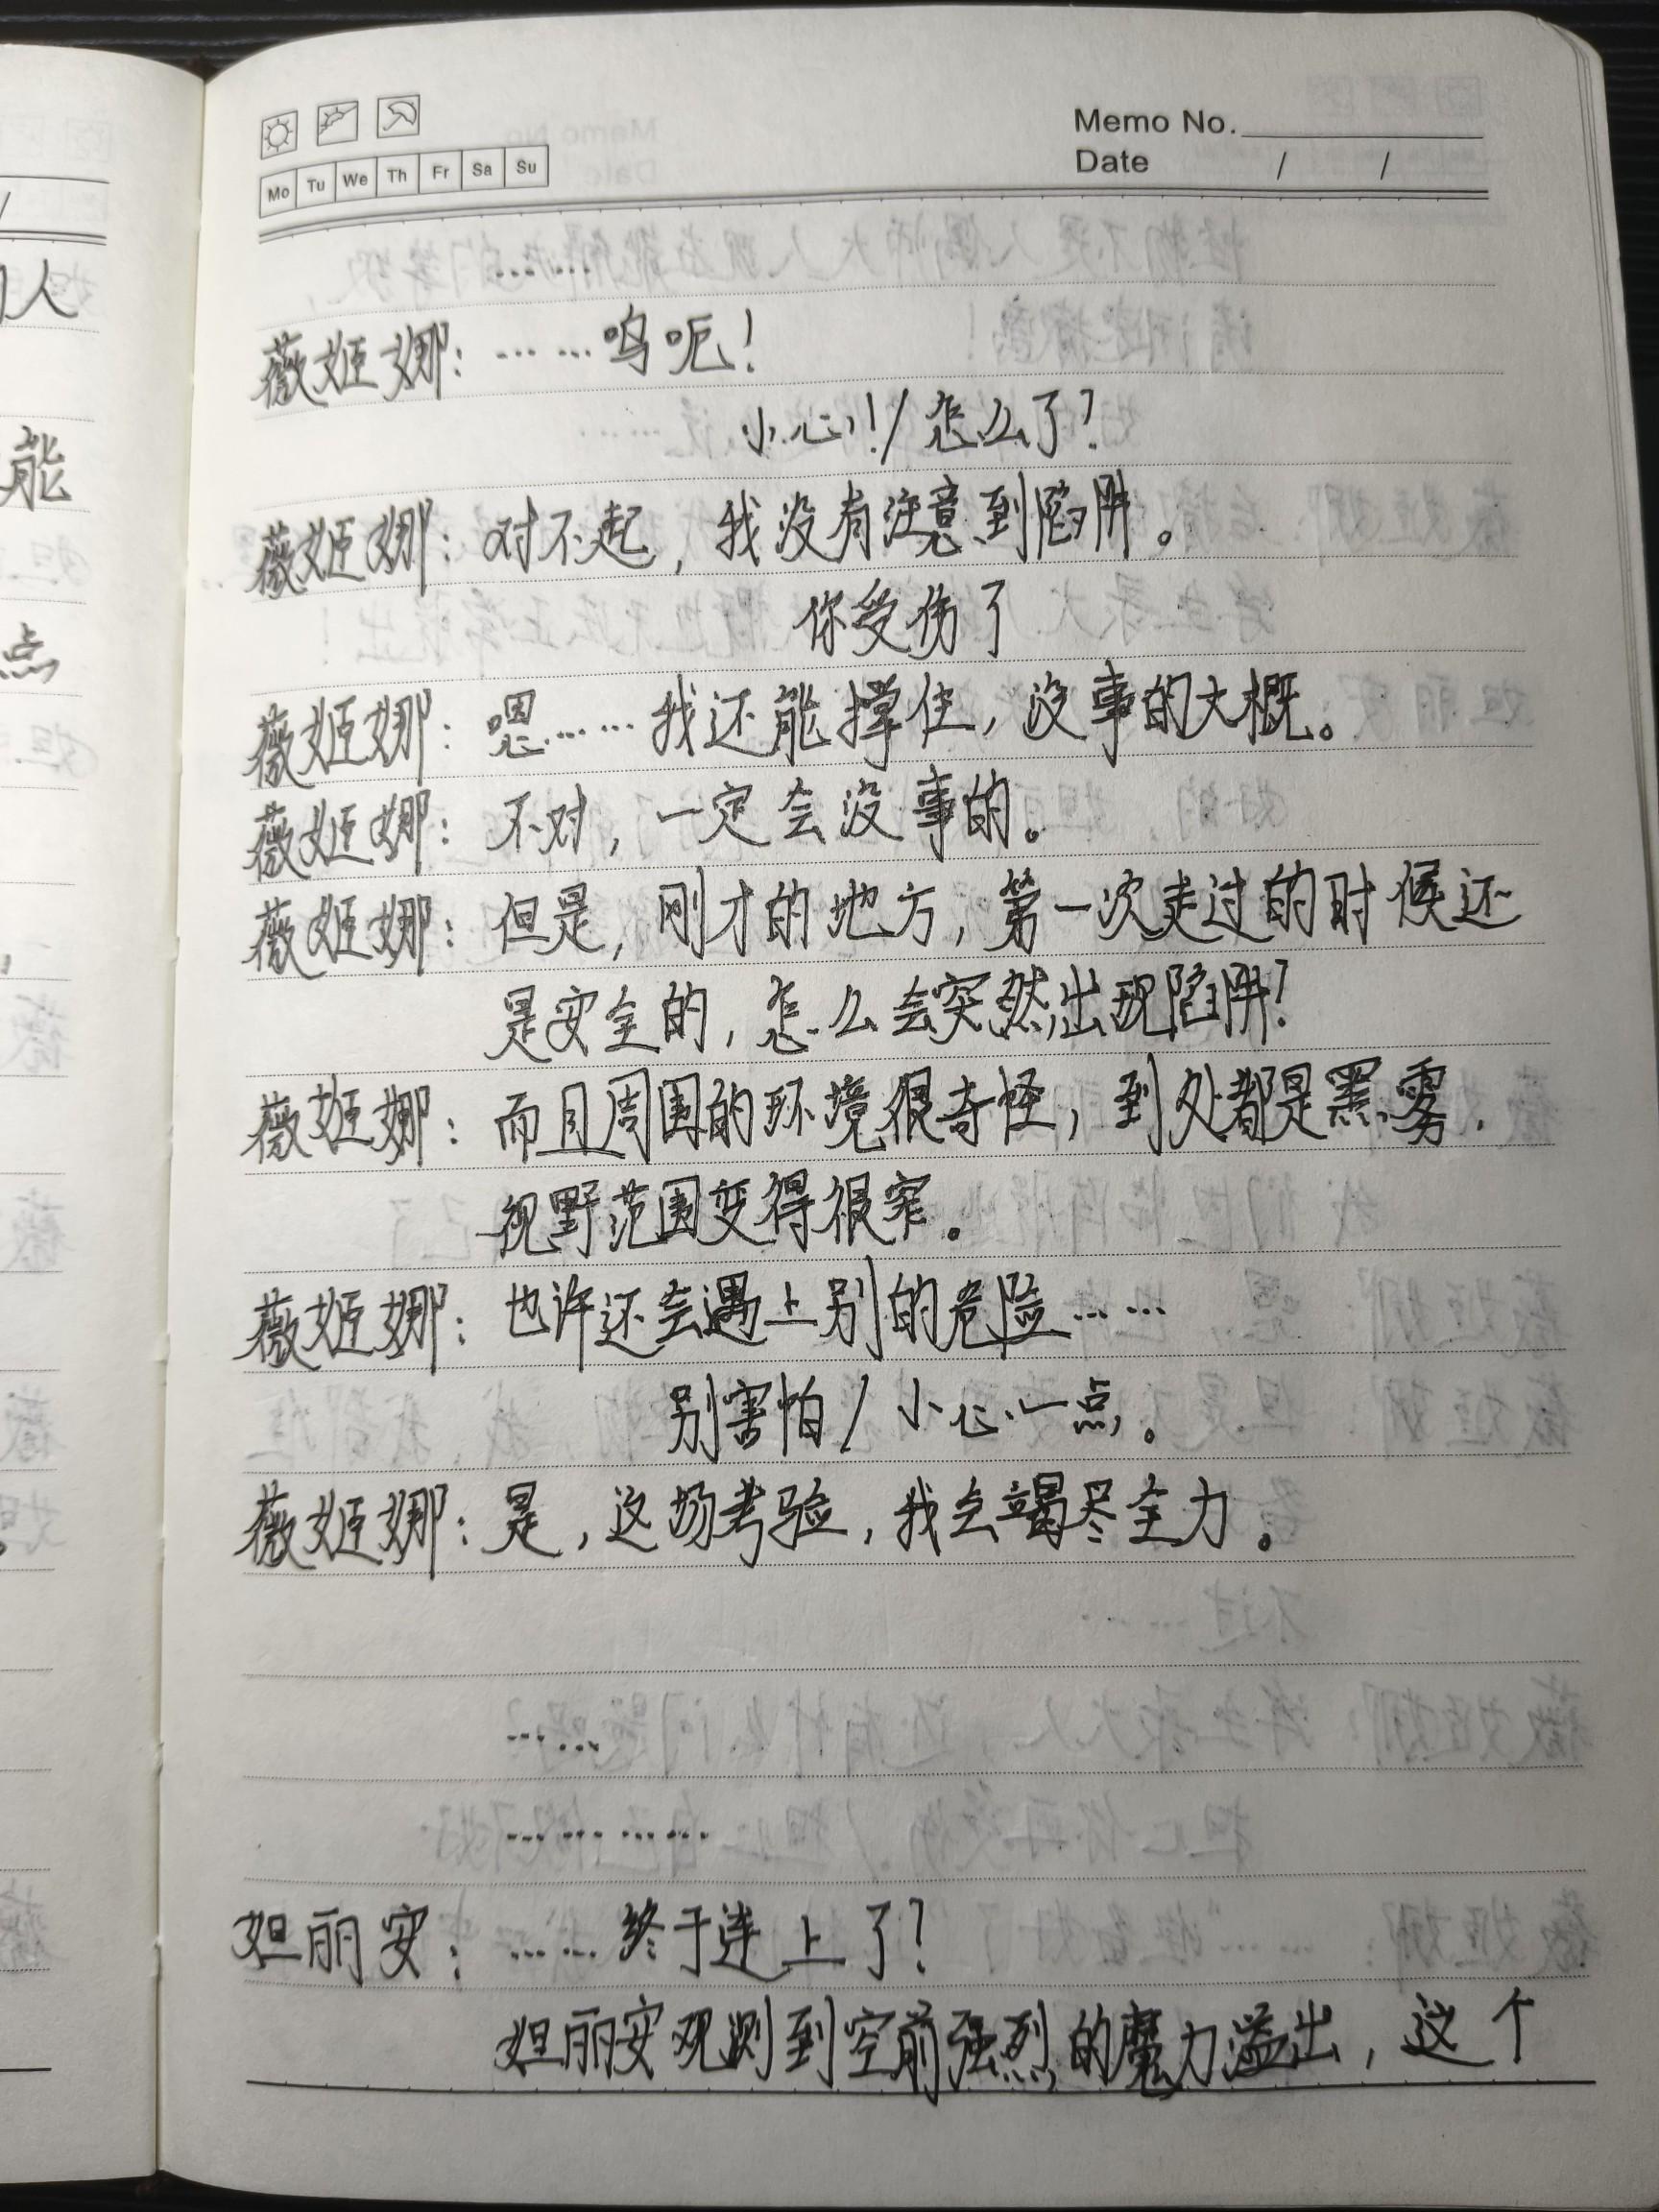 Memo No.
Mo Tu We Th Fr Sa Su
Date / /
人
能
点
……
薇姬娜：……呜呃！
小心！/怎么了？
薇姬娜：对不起，我没有注意到陷阱。
你受伤了
薇姬娜：嗯……我还能撑住，没事的大概。
薇姬娜：不对，一定会没事的。
薇姬娜：但是，刚才的地方，第一次走过的时候还
是安全的，怎么会突然出现陷阱？
薇姬娜：而且周围的环境很奇怪，到处都是黑雾，
视野范围变得很窄。
薇姬娜：也许还会遇上别的危险……
别害怕/小心一点。
薇姬娜：是，这场考验，我会竭尽全力。
……
…………
妲丽安：……终于连上了？
妲丽安观测到空前强烈的魔力溢出，这个